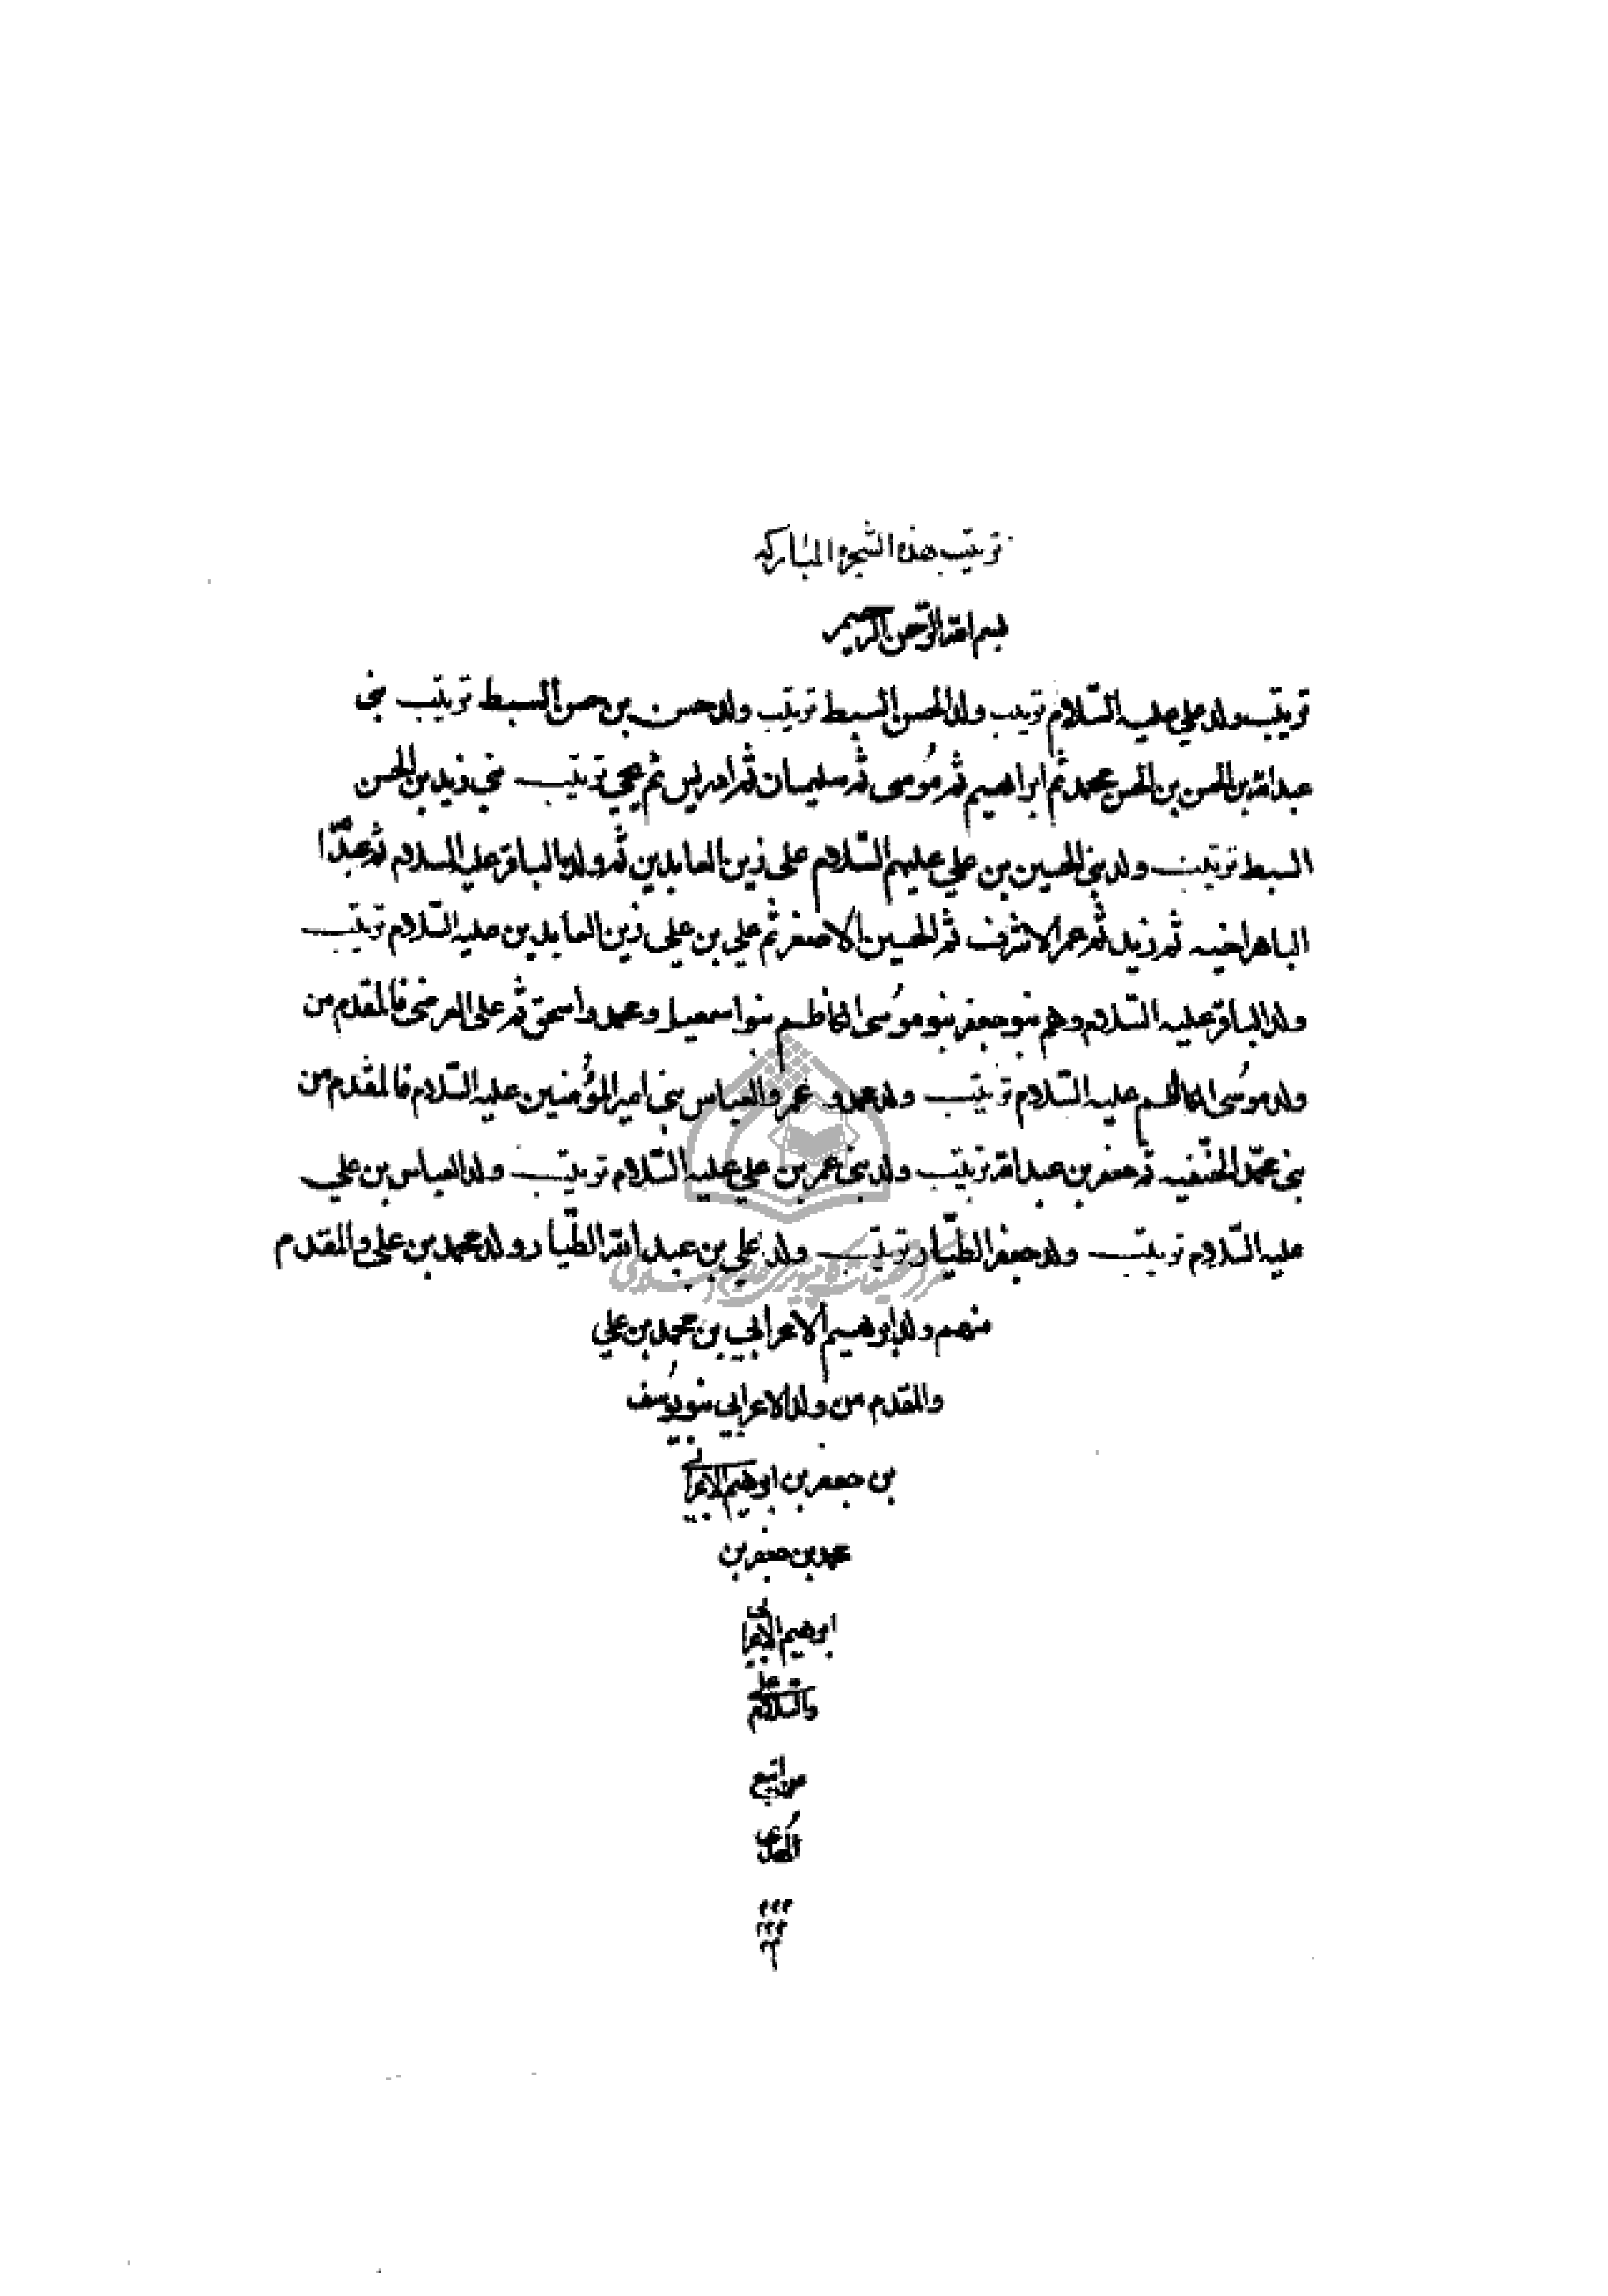 ترتيب هذه الشجرة المباركه
بسم الله الرحمن الرحيم
ترتيب ولد علي عليه السّلام ترتيب ولد الحسن السبط ترتيب ولد حسن بن حسن السبط ترتيب بنى
عبد الله بن الحسن بن الحسن محمد ثم ابراهيم ثم مُوسى ثم سليمان ثم ادريس ثم يحيى ترتيب بنى زيد بن الحسن
السبط ترتيب ولد بنى الحسين بن علي عليهم السّلام على زين العابدين ثم ولده الباقر عليه السلام ثم عبد ا
الباهر اخيه ثم زيد ثم عمر الاشرف ثم الحسين الاصغر ثم علي بن علي زين العابدين عليه السّلام ترتيب
ولد الباقر عليه السّلام وهم بنو جعفر بنو موُسى الكاظم بنو اسمعيل ومحمد واسحق ثم على العرضى فالمقدم من
ولد موُسى الكاظم عليه السّلام ترتيب ولد محمد وعمر والعباس بنى امير المؤُمنين عليه السّلام فالمقدم من
بنى محمّد الحنفيه ثم جعفر بن عبد الله ترتيب ولد بنى عمر بن علي عليه السّلام ترتيب ولد العباس بن علي
عليه السّلام ترتيب ولد جعفر الطيّار ترتيب ولد علي بن عبد الله الطّيار ولد محمد بن على والمقدم
منهم ولد ابرهيم الاعرابي بن محمد بن علي
والمقدم من ولد الاعرابي بنو يوُسف
بن جعفر بن ابرهيم الاعرابي
محمد بن جعفر بن
ابرهيم الاعرابي
والسّلام على
من اتبع
الهُدى